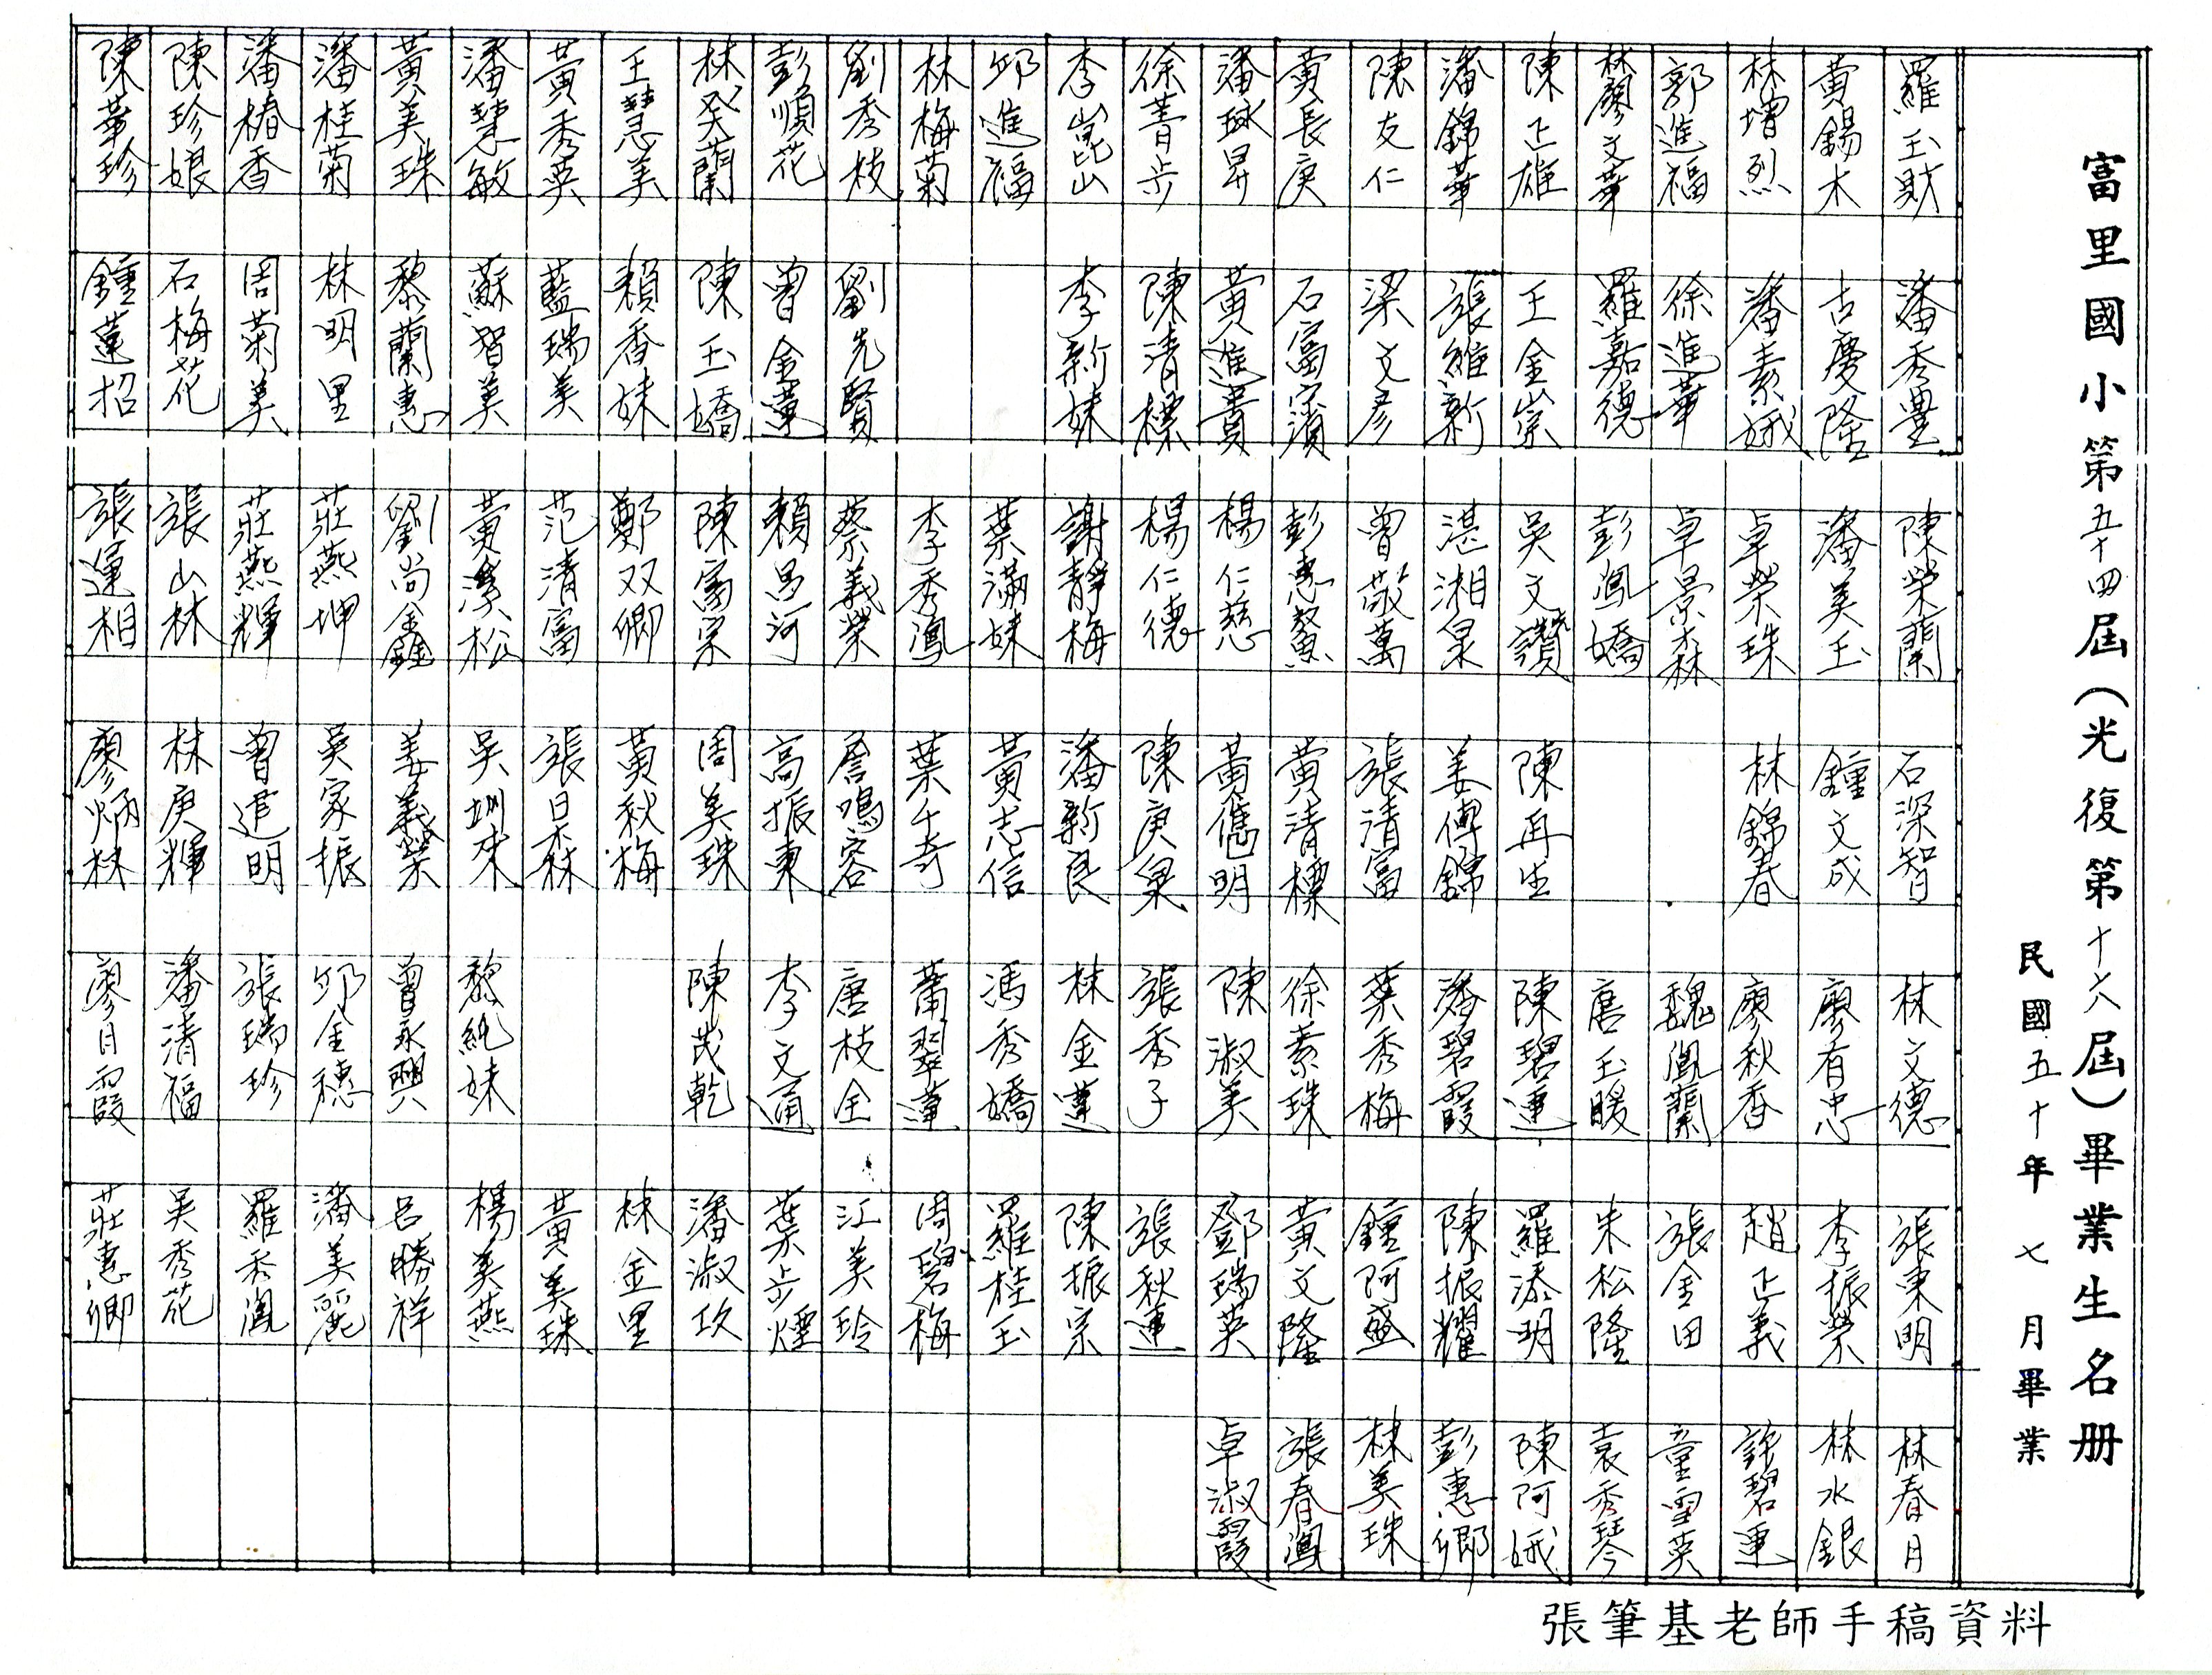 富里國小第五十四屆(光復第十六屆)畢業生名册
民國五十年七月畢業
羅玉財
黃錫木
林增烈
郭進福
林廖文華
陳正雄
潘錦華
陳友仁
黃長庚
潘球昇
徐菁步
李崑山
邱進福
林梅菊
劉秀枝
彭順花
林癸蘭
王慧美
黃秀英
潘慧敏
黃美珠
潘桂菊
潘椿香
陳珍娘
陳華珍
潘秀豊
古慶隆
潘素娥
徐進華
羅嘉德
王金崇
張維新
梁文彥
石富濱
黃進貴
陳清標
李新妹
劉先賢
曾金蓮
陳玉嬌
賴香妹
藍瑞美
蘇智美
黎蘭惠
林明里
周菊美
石梅花
鍾蓮招
陳榮蘭
潘美玉
卓榮珠
卓景森
彭鳳嬌
吳文讚
湛湘泉
曾敬萬
彭惠鰲
楊仁慈
楊仁德
謝靜梅
葉滿妹
李秀鳳
蔡義榮
賴昌河
陳富宗
鄭双卿
范清富
黃漢松
劉尚鑫
莊燕坤
莊燕輝
張山林
張運相
石深智
鍾文成
林錦春
陳再生
姜傳錦
張清富
黃清標
黃舊明
陳庚泉
潘新良
黃志信
葉千奇
詹鳴容
高振東
周美珠
黃秋梅
張日森
吳圳來
姜義榮
吳家振
曾追明
林庚輝
廖炳林
林文德
廖有忠
廖秋香
魏鳳蘭
唐玉暖
陳碧蓮
潘碧霞
葉秀梅
徐素珠
陳淑美
張秀子
林金蓮
馮秀嬌
蕭翠蓮
唐枝全
李文通
陳茂乾
黎純妹
曾永興
邱金穗
張瑞珍
潘清福
廖月霞
張東明
李振榮
趙正義
張金田
朱松隆
羅添明
陳振耀
鍾阿盛
黃文隆
鄧瑞英
張秋蓮
陳振宗
羅桂玉
周碧梅
江美玲
葉步煙
潘淑玫
林金里
黃美珠
楊美燕
呂勝祥
潘美麗
羅秀鳳
吳秀花
莊惠卿
林春月
林水銀
許碧蓮
童雪英
袁秀琴
陳阿娥
彭惠卿
林美珠
張春鳳
卓淑霞
張筆基老師手稿資料